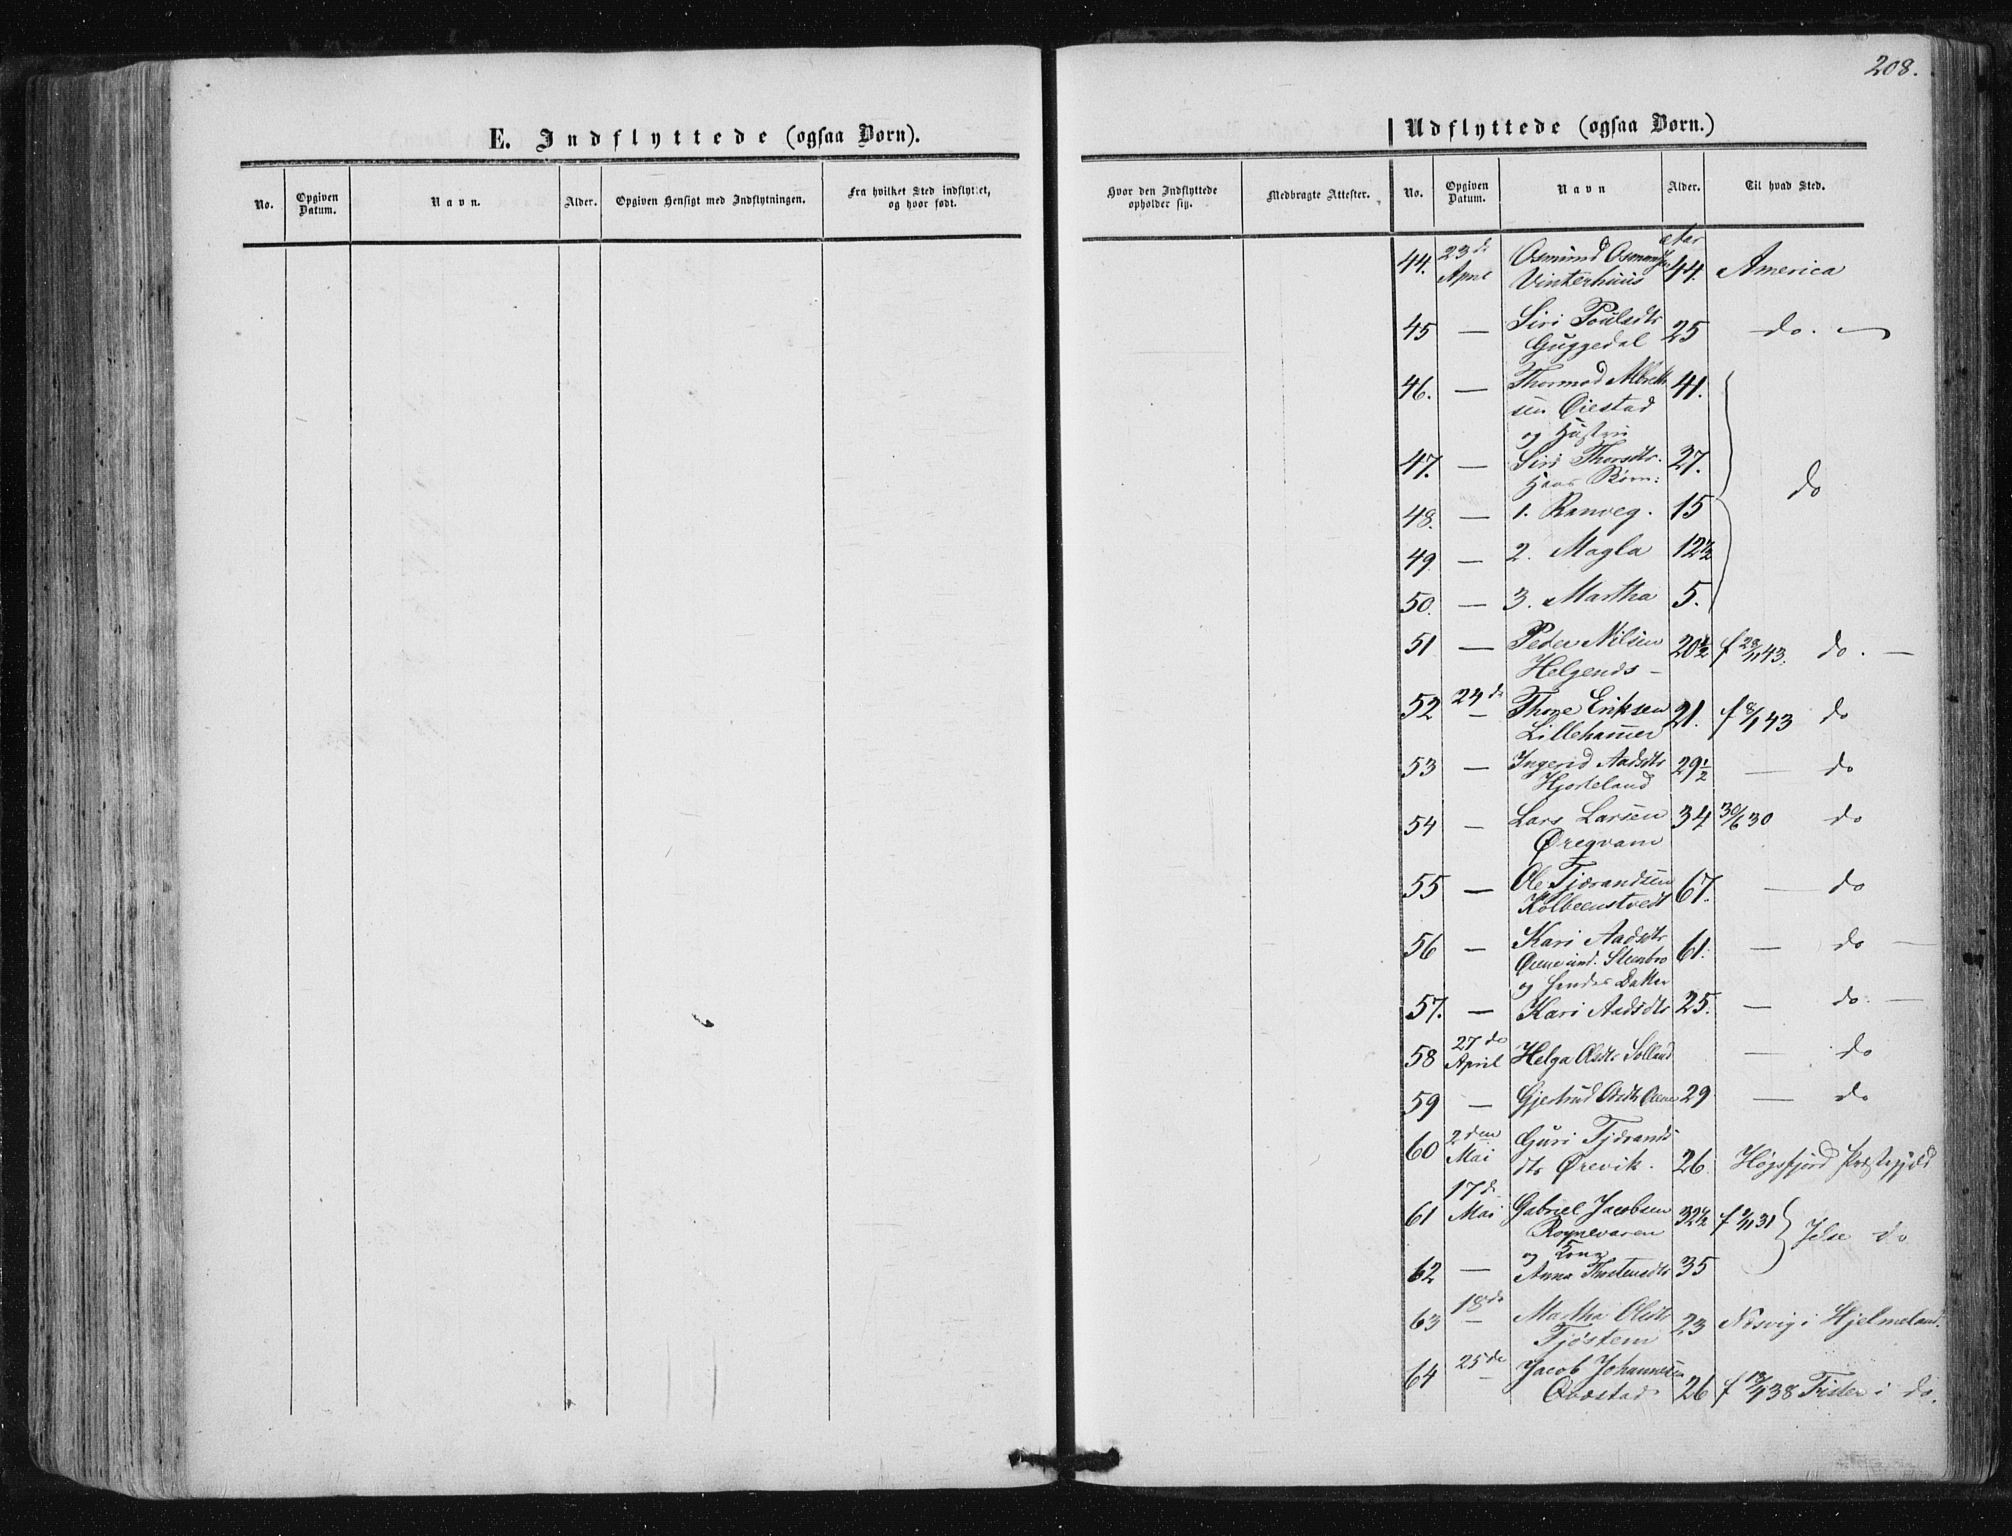 208.
E. Indflyttede (ogsaa Børn).
Udflyttede (ogsaa Børn.)
No.
Opgiven Datum.
Navn.
Alder.
Opgiven Hensigt med Indflytningen.
Fra hvilket Sted indflyttet, og hvor født.
Hvor den Indflyttede opholder sig.
Medbragte Attester.
No.
Opgiven Datum.
Navn
Alder.
Til hvad Sted.
44. 23de April Osmund
Vinterhuus 44. America
45 — Siri Poulsdtr
Guggedal 25 do. —
46. — Thormod Albrekt
sen Øiestad 41.
og Hustru
47. — Siri Thorsdtr. 27. do
Hans Børn:
48. — 1. Ranveg. 15
49 — 2. Magla 12½
50. — 3. Martha 5.
51 — Peder Nilsen 20½ f 23/11 43. do. —
Helgenæs —
52 24de — Thore Eriksen 21. f 8/1 43 do
Lillehammer
53 — Ingerid Aadsdtr 29½ — do
Hjorteland
54 — Lars Larsen 34 30/6 30 do
Øregvam
55 — Ole Tjerandsen 67. — do
Kolbeenstvedt
56 — Kari Aadsdtr 61. — do —
Øene und. Steenbro
og hendes Datter
57. — Kari Aadsdtr 25. — do. —
58 27de April Helga Olsdtr Solland — do
59 — Gjertrud Olsdtr Øene 29 — do
60 2den Mai Guri Tjerands
dtr Ørevik. 26. Høgsfjord Præstegjeld
61 17de Mai Gabriel Jacobsen 32½ f 9/11 31 Jelse do
Rognevaren
og Kone
62 — Anna Thostensdtr 35
63 18de — Martha Olsdtr 23 Næsvig i Hjelmeland.
Tjøstem
64 25de — Jacob Johannesen
Qvæstad 26 f 38 Fister i do.